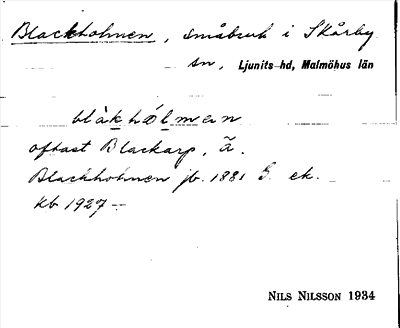 Blackholmen, småbruk i Skårby
sn, Ljunits hd, Malmöhus län
blàkhólmen
oftast Blackarp, ã.
Blackholmen jb. 1881 ek.
kb 1927 -
NILS NILSSON 1934